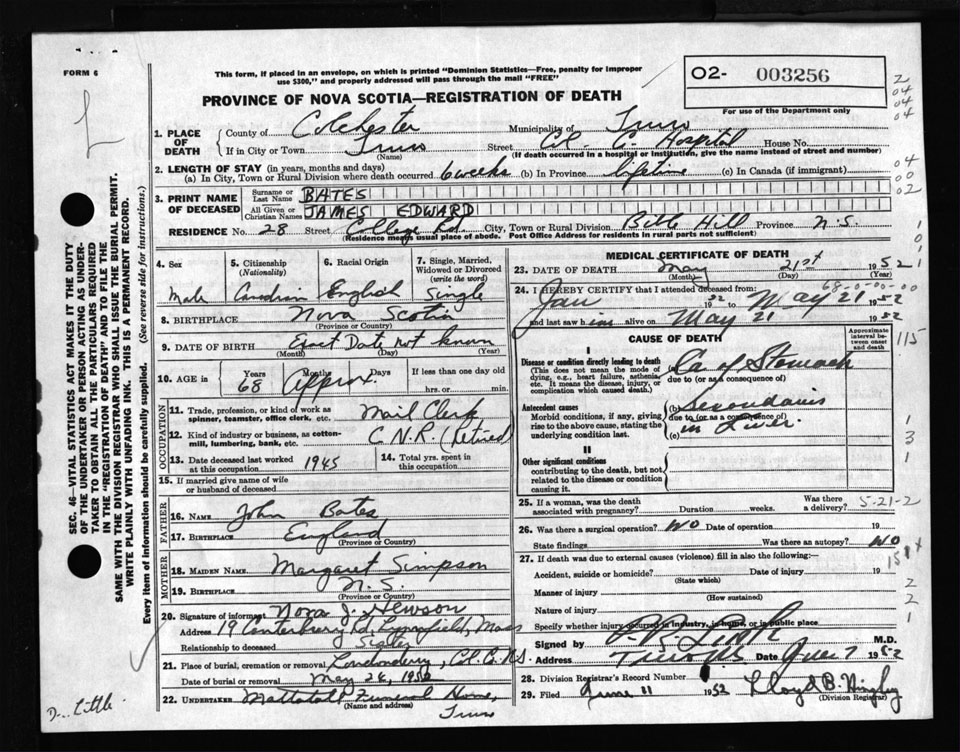 FORM 6
This form, if placed in an envelope, on which is printed "Dominion Statistics—Free, penalty for improper
use $300," and properly addressed will pass through the mail "FREE"
O2- 003256
For use of the Department only
PROVINCE OF NOVA SCOTIA—REGISTRATION OF DEATH
2
04
04
04
1. PLACE OF DEATH
County of Colchester Municipality of Truro
If in City or Town Truro Street Col. C. Hospital House No.
(Name) (If death occurred in a hospital or institution, give the name instead of street and number)
2. LENGTH OF STAY (in years, months and days)
(a) In City, Town or Rural Division where death occurred 6 weeks (b) In Province lifetime (c) In Canada (if immigrant)
04
00
02
3. PRINT NAME OF DECEASED
Surname or Last Name BATES
All Given or Christian Names JAMES EDWARD
RESIDENCE No. 28 Street College Rd. City, Town or Rural Division Bible Hill Province N.S.
(Residence means usual place of abode. Post Office Address for residents in rural parts not sufficient)
4. Sex Male
5. Citizenship (Nationality) Canadian
6. Racial Origin English
7. Single, Married, Widowed or Divorced (write the word) Single
8. BIRTHPLACE Nova Scotia
(Province or Country)
9. DATE OF BIRTH Exact Date not known
(Month) (Day) (Year)
10. AGE in Years 68 Months Days Approx.
If less than one day old
hrs. or min.
OCCUPATION
11. Trade, profession, or kind of work as spinner, teamster, office clerk, etc. Mail Clerk
12. Kind of industry or business, as cotton-mill, lumbering, bank, etc. C.N.R. (Retired)
13. Date deceased last worked at this occupation 1945
14. Total yrs. spent in this occupation
15. If married give name of wife or husband of deceased
FATHER
16. NAME John Bates
17. BIRTHPLACE England
(Province or Country)
MOTHER
18. MAIDEN NAME Margaret Simpson
19. BIRTHPLACE N.S.
(Province or Country)
20. Signature of informant Nora J. Hewson
Address 19 Canterbury Rd, Lynnfield, Mass
Relationship to deceased Sister
21. Place of burial, cremation or removal Londonderry, Col. Co. N.S.
Date of burial or removal May 24, 1952
22. UNDERTAKER Mattatall Funeral Home,
(Name and address) Truro
MEDICAL CERTIFICATE OF DEATH
23. DATE OF DEATH May 21st 1952
(Month) (Day) (Year)
68-0-00-00
24. I HEREBY CERTIFY that I attended deceased from:
Jan 1952 to May 21 1952
and last saw him alive on May 21 1952
CAUSE OF DEATH
Approximate interval between onset and death
115
I
Disease or condition directly leading to death
(This does not mean the mode of dying, e.g., heart failure, asthenia, etc. It means the disease, injury, or complication which caused death.)
Ca of Stomach
due to (or as a consequence of)
Antecedent causes
Morbid conditions, if any, giving rise to the above cause, stating the underlying condition last.
(b) Secondaries
due to (or as a consequence of)
(c) in Liver.
1
3
1
II
Other significant conditions
contributing to the death, but not related to the disease or condition causing it.
25. If a woman, was the death associated with pregnancy? Duration weeks. Was there a delivery?
5-21-2
26. Was there a surgical operation? No Date of operation 19
State findings Was there an autopsy? No
27. If death was due to external causes (violence) fill in also the following:—
Accident, suicide or homicide? Date of injury 19
(State which)
Manner of injury
(How sustained)
Nature of injury
Specify whether injury occurred in industry, in home, or in public place
2
2
1
Signed by M.D.
Address Truro NS Date June 7 1952
28. Division Registrar's Record Number
29. Filed June 11 1952 Lloyd B. Hingley
(Division Registrar)
SEC. 46—VITAL STATISTICS ACT MAKES IT THE DUTY
OF THE UNDERTAKER OR PERSON ACTING AS UNDER-
TAKER TO OBTAIN ALL THE PARTICULARS REQUIRED
IN THE "REGISTRATION OF DEATH" AND TO FILE THE
SAME WITH THE DIVISION REGISTRAR WHO SHALL ISSUE THE BURIAL PERMIT.
WRITE PLAINLY WITH UNFADING INK. THIS IS A PERMANENT RECORD.
Every item of information should be carefully supplied. (See reverse side for instructions.)
Little